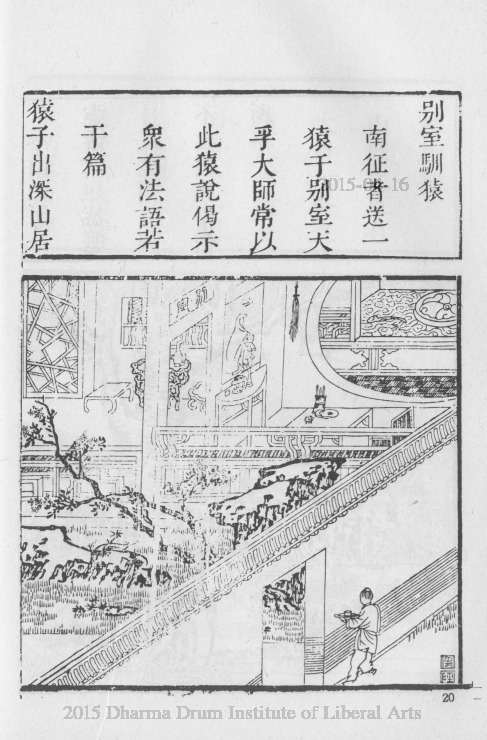 别室馴猿
南征者送一
猿于别室夭
乎大師常以
此猿說偈示
衆有法語若
干篇
猿子出深山居
20
2015 Dharma Drum Institute of Liberal Arts